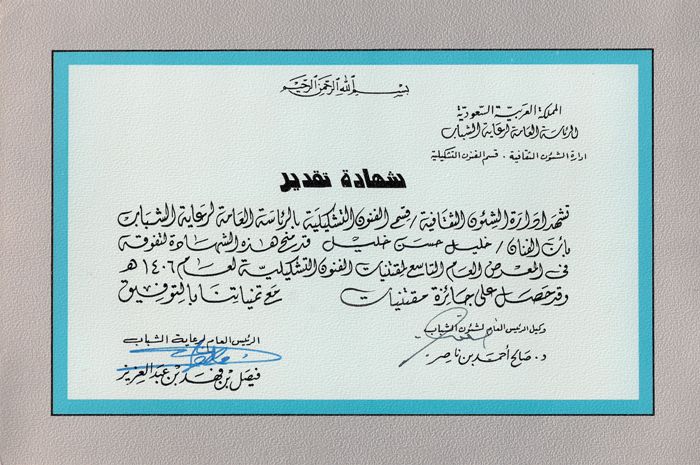 بسم الله الرحمن الرحيم
المملكة العربية السعودية
الرئاسة العامة لرعاية الشباب
ادارة الشئون الثقافية . قسم الفنون التشكيلية
شهادة تقدير
تشهد ادارة الشئون الثقافية / قسم الفنون التشكيلية بالرئاسة العامة لرعاية الشباب
بأن الفنان / خليل حسن خليل قد منح هذه الشهادة لتفوقه
في المعرض العام التاسع لمقتنيات الفنون التشكيلية لعام ١٤٠٦ هـ
وقد حصل على جائزة مقتنيات مع تمنياتنا بالتوفيق
وكيل الرئيس العام لشئون الشباب
د. صالح أحمد بن ناصر
الرئيس العام لرعاية الشباب
فيصل بن فهد بن عبد العزيز